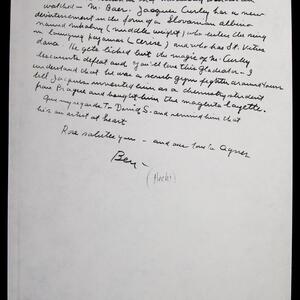 watched - M. Baer. Jacques Curley has a new
divertissement in the form of a Slovanian albino
named (middle weight) who enters the ring
in pajamas (cerise) and who has St. Vitus
dance. He gets licked but the magic of M. Curley
defeat and you'll love this Gladiator. I
understand that he was a scrub gym fighter around
till Jacques him as a chemistry student
from Prague and bought him the magenta layette.
Give my regards to David S. and remind him that
he's an artist at heart
Rose salutes you - and our love to Agnes
Ben -
(Hecht)